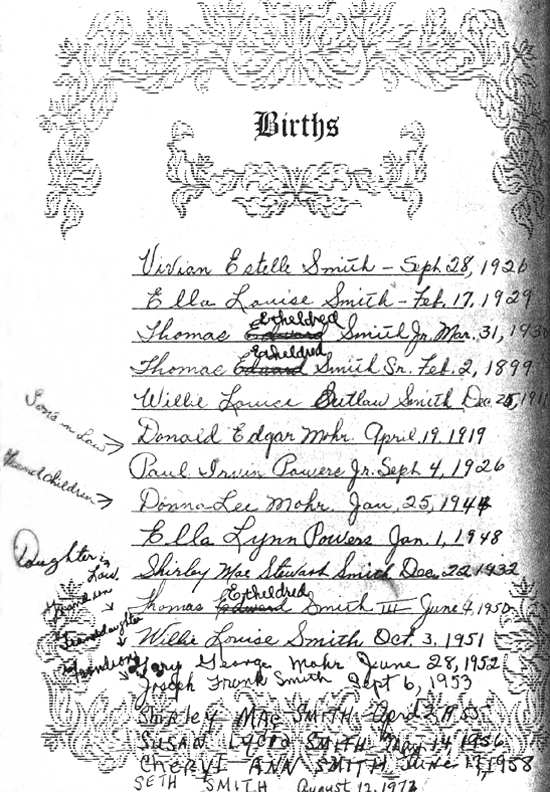 Births
Vivian Estelle Smith - Sept. 28, 1926
Ella Louise Smith - Feb. 17, 1929
Etheldred
Thomas Edward Smith Jr. Mar. 31, 193
Etheldred
Thomas Edward Smith Sr. Feb. 2, 1899
Willie Louise Outlaw Smith Dec. 25, 191
Sons in Law
Donald Edgar Mohr. April 19, 1919
Paul Irvin Powers Jr. Sept 4, 1926
Grandchildren
Donna Lee Mohr. Jan. 25, 1944
Ella Lynn Powers Jan. 1, 1948
Daughter in Law
Shirley Mae Stewart Smith Dec. 22, 1932
Etheldred
Grandson
Thomas Edward Smith III June 4, 1950
Granddaughter
Willie Louise Smith Oct. 3, 1951
Grandson
Gary George Mohr June 28, 1952
Joseph Frank Smith Sept 6, 1953
SHIRLEY MAE SMITH April 55
SUSAN SMITH May 14, 1956
CHERYL ANN SMITH June 1958
SETH SMITH August 12, 197